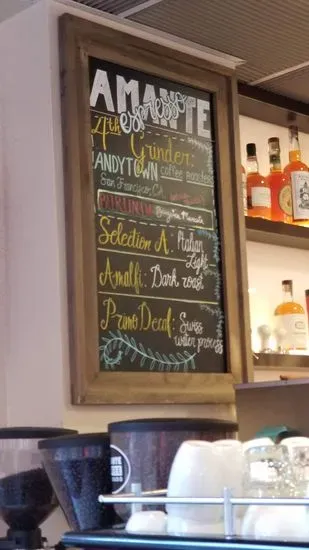 AMANTE
espresso
4th
Grinder:
ANDYTOWN coffee roasters
San Francisco, CA
BURUNDI
Selection A: Italian
Light
Amalfi: Dark roast
Primo Decaf: Swiss
water process